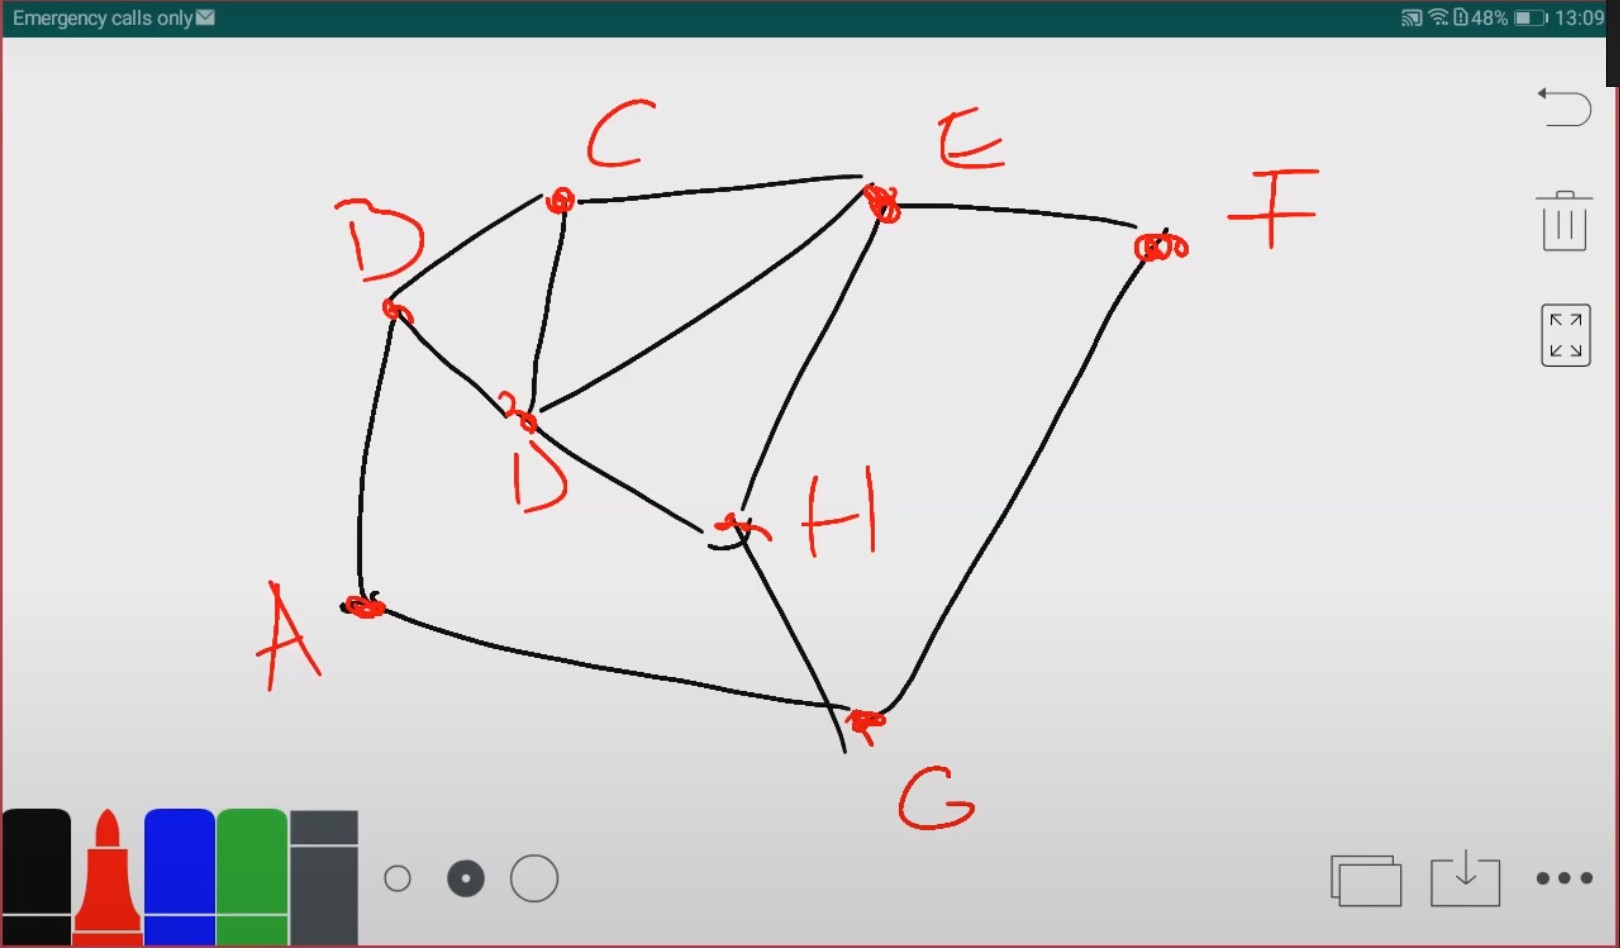 Emergency calls only
48% 13:09
C
E
F
D
D
H
A
G